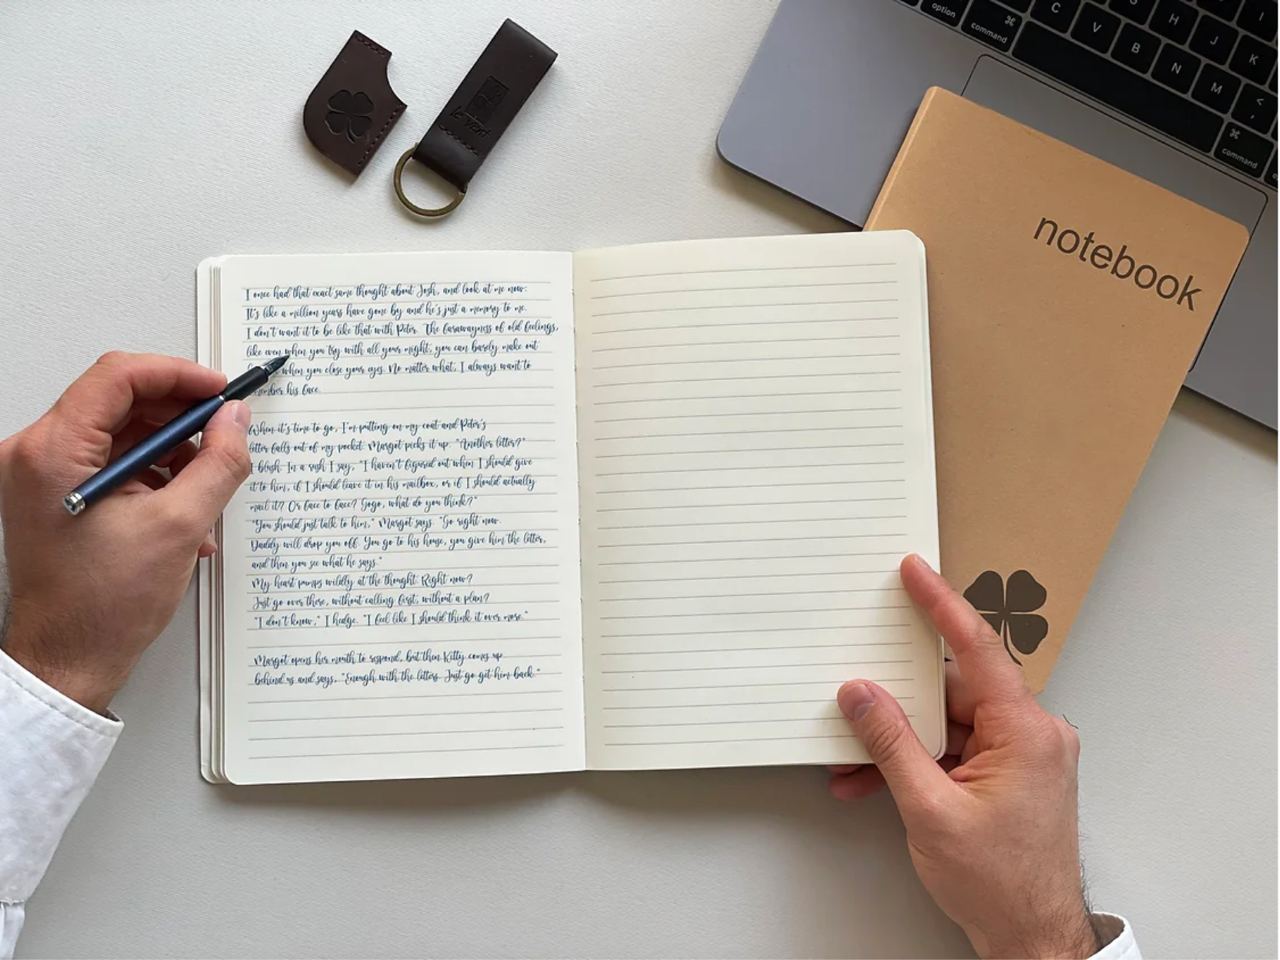 I once had that exact same thought about Josh, and look at me now.
It's like a million years have gone by and he's just a memory to me.
I don't want it to be like that with Peter. The farawayness of old feelings,
like even when you try with all your might, you can barely make out
when you close your eyes. No matter what, I always want to
his face.
When it's time to go, I'm putting on my coat and Peter's
letter falls out of my pocket. Margot picks it up. "Another letter?"
I blush. In a rush I say, "I haven't figured out when I should give
it to him, if I should leave it in his mailbox, or if I should actually
mail it? Or face to face? Gogo, what do you think?"
"You should just talk to him," Margot says. "Go right now.
Daddy will drop you off. You go to his house, you give him the letter,
and then you see what he says."
My heart pumps wildly at the thought. Right now?
Just go over there, without calling first, without a plan?
"I don't know," I hedge. "I feel like I should think it over more."
Margot opens her mouth to respond, but then Kitty comes up
behind us and says, "Enough with the letters. Just go get him back."
le vent
notebook
option
command
C
V
B
N
M
H
J
K
I
<
,
command